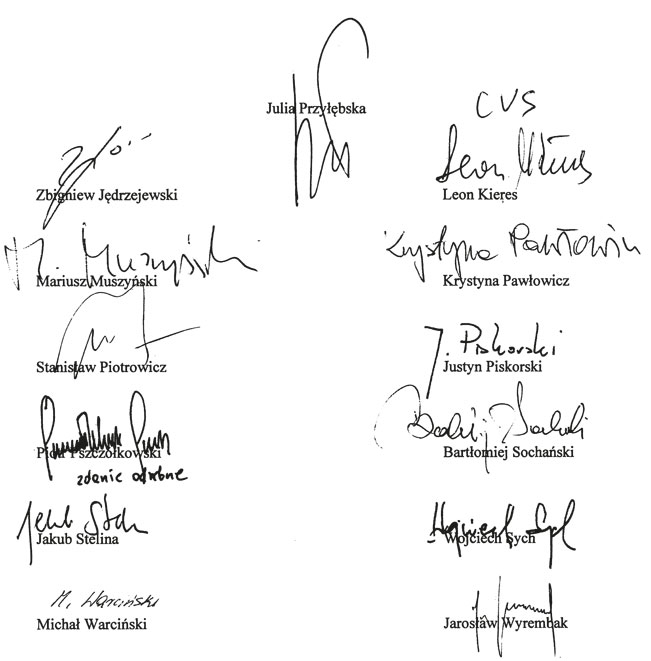 Julia Przyłębska
CVS
Leon Kieres
Zbigniew Jędrzejewski
Leon Kieres
M. Muszyński
Krystyna Pawłowicz
Mariusz Muszyński
Krystyna Pawłowicz
J. Piskorski
Stanisław Piotrowicz
Justyn Piskorski
Piotr Pszczółkowski
Bartłomiej Sochański
zdanie odrębne
Jakub Stelina
Wojciech Sych
M. Warciński
Michał Warciński
Jarosław Wyrembak